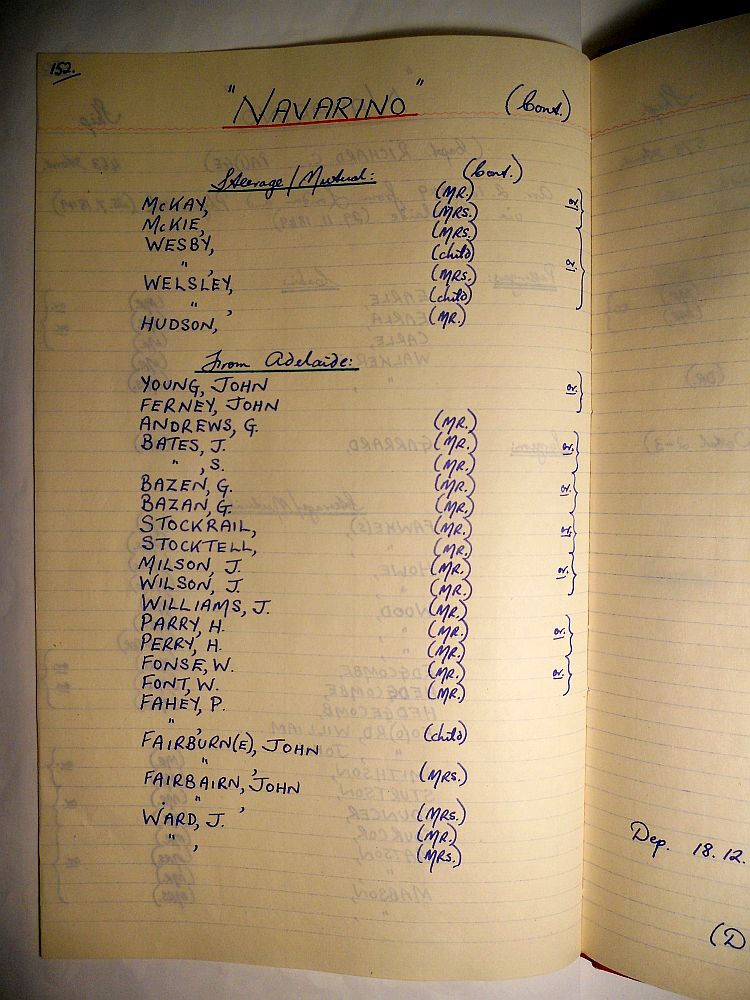 152.
"NAVARINO" (Cont.)
Steerage/Mutual: (Cont.)
McKAY, (MR.) or.
McKIE, (MRS.)
WESBY, (MRS.)
" , (child) or.
WELSLEY, (MRS.)
" , (child)
HUDSON, (MR.)
From Adelaide:
YOUNG, JOHN or.
FERNEY, JOHN
ANDREWS, G. (MR.)
BATES, J. (MR.) or.
" , S. (MR.)
BAZEN, G. (MR.) or.
BAZAN, G. (MR.)
STOCKRAIL, (MR.) or.
STOCKTELL, (MR.)
MILSON, J. (MR.) or.
WILSON, J. (MR.)
WILLIAMS, J. (MR.)
PARRY, H. (MR.) or.
PERRY, H. (MR.)
FONSE, W. (MR.) or.
FONT, W. (MR.)
FAHEY, P.
" , (child)
FAIRBURN(E), JOHN
" , (MRS.)
FAIRBAIRN, JOHN
" , (MRS.)
WARD, J. (MR.)
" , (MRS.)
Dep. 18.12.
(D